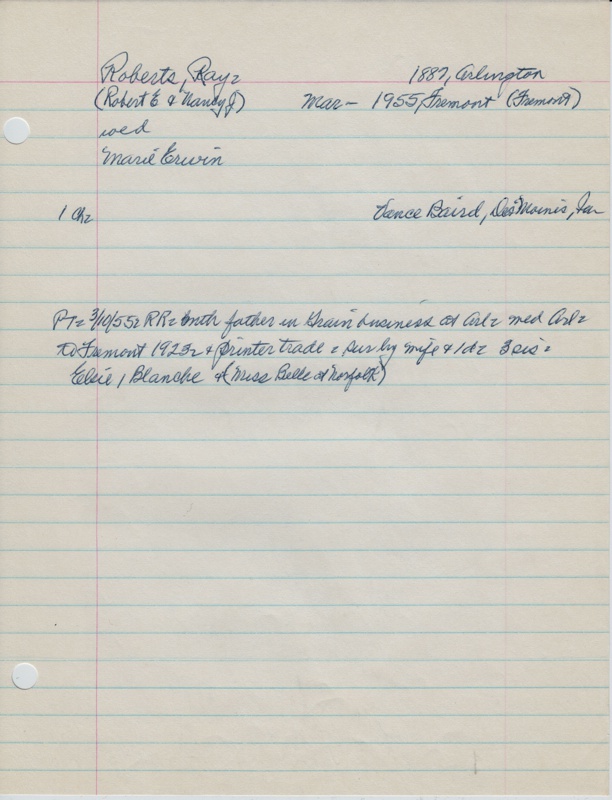 Roberts, Ray = 1887, Arlington
(Robert E & Nancy J) Mar - 1955, Fremont (Fremont)
wed
Marie Erwin
1 Ch= Vance Baird, Des Moinis, Ia
PT= 3/10/55= RR= with father in Grain business at Arl= wed Arl=
to Fremont 1923= & printer trade = sur by wife & 1d= 3 sis=
Elsie, Blanche & (Miss Belle at Norfolk)